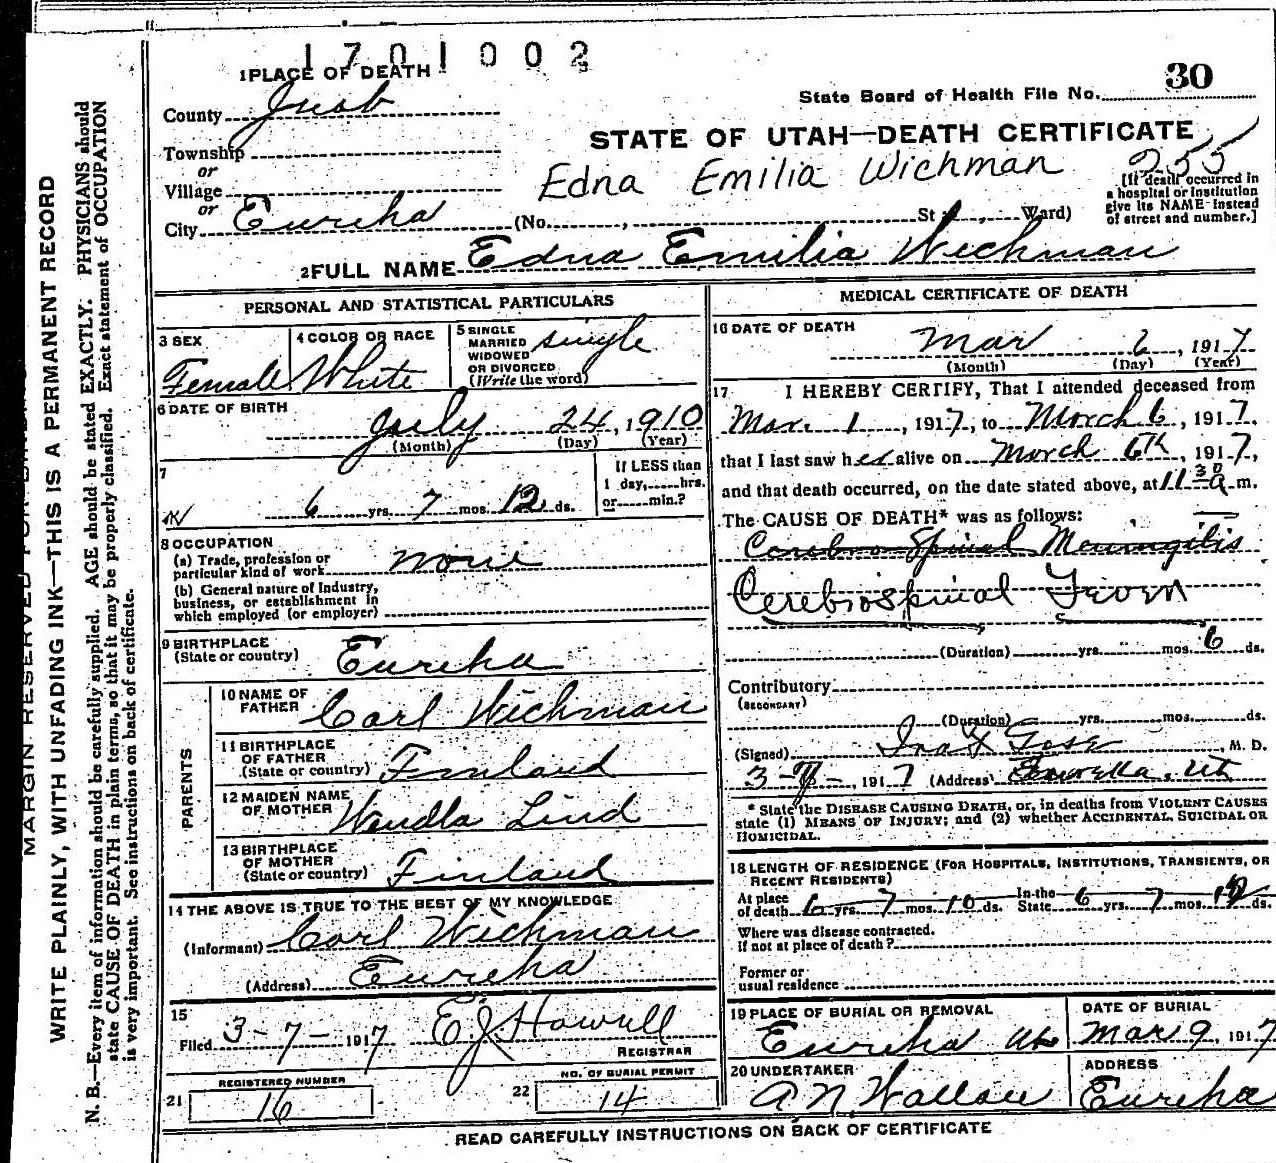 1701002
1 PLACE OF DEATH
30
State Board of Health File No.
County Juab
STATE OF UTAH—DEATH CERTIFICATE
Township
or
Village
Edna Emilia Wichman
255
[If death occurred in
a hospital or institution
give its NAME instead
of street and number.]
or
City Eureka (No. , St. , Ward)
2 FULL NAME Edna Emilia Wichman
PERSONAL AND STATISTICAL PARTICULARS
3 SEX
Female
4 COLOR OR RACE
White
5 SINGLE
MARRIED
WIDOWED
OR DIVORCED
(Write the word)
single
6 DATE OF BIRTH
July 24, 1910
(Month) (Day) (Year)
7
6 yrs. 7 mos. 12 ds.
If LESS than
1 day, hrs.
or min.?
8 OCCUPATION
(a) Trade, profession or
particular kind of work none
(b) General nature of Industry,
business, or establishment in
which employed (or employer)
9 BIRTHPLACE
(State or country) Eureka
PARENTS
10 NAME OF
FATHER Carl Wichman
11 BIRTHPLACE
OF FATHER
(State or country) Finland
12 MAIDEN NAME
OF MOTHER Wendla Lind
13 BIRTHPLACE
OF MOTHER
(State or country) Finland
14 THE ABOVE IS TRUE TO THE BEST OF MY KNOWLEDGE
(Informant) Carl Wichman
(Address) Eureka
15
Filed 3-7-1917 E. J. Howell
REGISTRAR
21 REGISTERED NUMBER
16
22 NO. OF BURIAL PERMIT
14
MEDICAL CERTIFICATE OF DEATH
16 DATE OF DEATH
Mar 6, 1917
(Month) (Day) (Year)
17 I HEREBY CERTIFY, That I attended deceased from
Mar. 1, 1917, to March 6, 1917,
that I last saw her alive on March 6th, 1917,
and that death occurred, on the date stated above, at 11 30 a m.
The CAUSE OF DEATH* was as follows:
Cerebro Spinal Meningitis
Cerebrospinal Fever
(Duration) yrs. mos. 6 ds.
Contributory
(SECONDARY)
(Duration) yrs. mos. ds.
(Signed) M. D.
3-7-, 1917 (Address) Eureka, Ut
* State the DISEASE CAUSING DEATH, or, in deaths from VIOLENT CAUSES
state (1) MEANS OF INJURY; and (2) whether ACCIDENTAL, SUICIDAL OR
HOMICIDAL.
18 LENGTH OF RESIDENCE (FOR HOSPITALS, INSTITUTIONS, TRANSIENTS, OR
RECENT RESIDENTS)
At place
of death 6 yrs. 7 mos. 10 ds. In the State 6 yrs. 7 mos. ds.
Where was disease contracted.
if not at place of death?
Former or
usual residence
19 PLACE OF BURIAL OR REMOVAL
Eureka Ut
DATE OF BURIAL
Mar 9, 1917
20 UNDERTAKER
ADDRESS
Eureka
READ CAREFULLY INSTRUCTIONS ON BACK OF CERTIFICATE
WRITE PLAINLY, WITH UNFADING INK—THIS IS A PERMANENT RECORD
N. B.—Every item of information should be carefully supplied. AGE should be stated EXACTLY. PHYSICIANS should
state CAUSE OF DEATH in plain terms, so that it may be properly classified. Exact statement of OCCUPATION
is very important. See instructions on back of certificate.